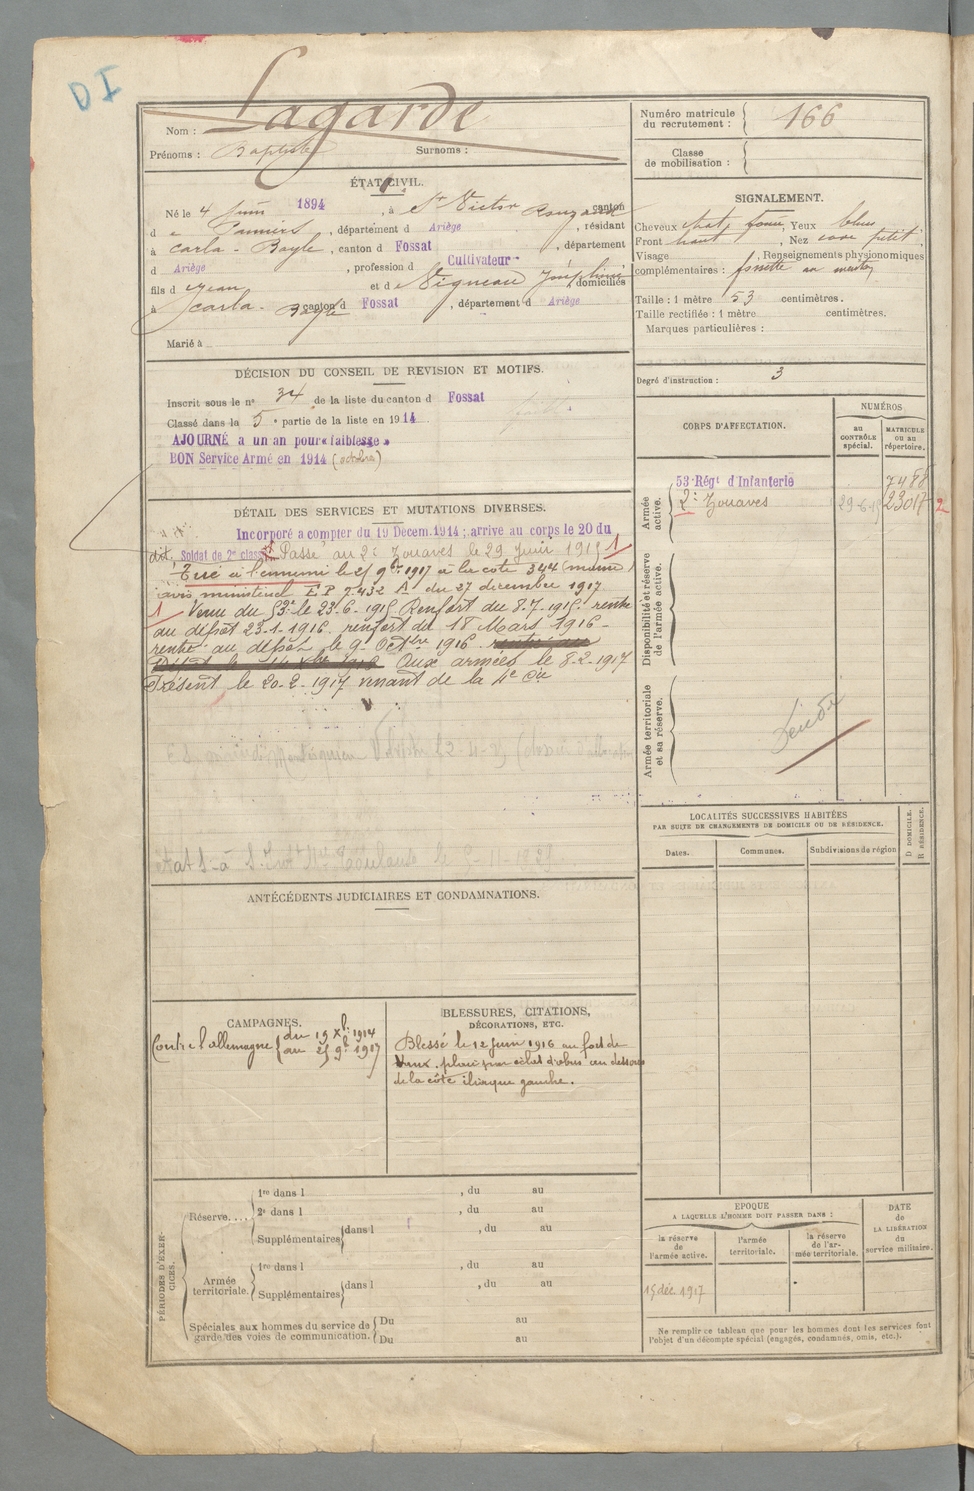 DI
Nom : Lagarde
Prénoms : Baptiste Surnoms :
Numéro matricule du recrutement : 166
Classe de mobilisation :
ÉTAT CIVIL.
Né le 4 Juin 1894, à St Victor Rouzaud canton
d e Pamiers, département d Ariège, résidant
à Carla-Bayle, canton d Fossat, département
d Ariège, profession d Cultivateur
fils d Jean et d e Vigneau Joséphine, domiciliés
à Carla-Bayle canton d Fossat, département d Ariège
Marié à
SIGNALEMENT.
Cheveux chat. foncé, Yeux bleus
Front haut, Nez cave petit,
Visage , Renseignements physionomiques
complémentaires : fossette au menton
Taille : 1 mètre 53 centimètres.
Taille rectifiée : 1 mètre centimètres.
Marques particulières :
Degré d'instruction : 3
DÉCISION DU CONSEIL DE REVISION ET MOTIFS.
Inscrit sous le n° 34 de la liste du canton d Fossat
Classé dans la 5e partie de la liste en 1914
AJOURNÉ a un an pour « faiblesse »
BON Service Armé en 1914 (octobre)
CORPS D'AFFECTATION.
NUMÉROS
au CONTRÔLE spécial.
MATRICULE ou au répertoire.
Armée active.
53e Régt d'Infanterie 7488
2e Zouaves 29-6-15 23017 2
Disponibilité et réserve de l'armée active.
Armée territoriale et sa réserve.
DÉTAIL DES SERVICES ET MUTATIONS DIVERSES.
Incorporé a compter du 19 Décem. 1914 ; arrive au corps le 20 du
dit, Soldat de 2e classe. Passé au 2e Zouaves le 29 Juin 1915 1
Tué à l'ennemi le 25 9bre 1917 à la cote 344 (meuse)
avis ministériel E.P. 7432 A du 27 décembre 1917
1 Venu du 53e le 23-6-1915 Renfort du 8-7-1915 rentré
au dépôt 23-1-1916. renfort du 18 Mars 1916-
rentré au dépôt le 9 Octbre 1916
Aux armées le 8-2-1917
Présent le 20-2-1917 venant de la 4e Cie
LOCALITÉS SUCCESSIVES HABITÉES
PAR SUITE DE CHANGEMENTS DE DOMICILE OU DE RÉSIDENCE.
Dates.
Communes.
Subdivisions de région
D DOMICILE.
R RÉSIDENCE.
ANTÉCÉDENTS JUDICIAIRES ET CONDAMNATIONS.
CAMPAGNES.
Contre l'allemagne du 19 Xbre 1914
au 25 9bre 1917
BLESSURES, CITATIONS,
DÉCORATIONS, ETC.
Blessé le 12 Juin 1916 au fort de
Vaux. plaie par éclat d'obus au dessous
de la côte iliaque gauche.
PÉRIODES D'EXERCICES.
Réserve....
1re dans l , du au
2e dans l , du au
Supplémentaires dans l , du au
Armée territoriale.
1re dans l , du au
Supplémentaires dans l , du au
Spéciales aux hommes du service de garde des voies de communication.
Du au
Du au
EPOQUE
A LAQUELLE L'HOMME DOIT PASSER DANS :
la réserve de l'armée active.
l'armée territoriale.
la réserve de l'armée territoriale.
DATE de LA LIBÉRATION du service militaire.
15 déc. 1917
Ne remplir ce tableau que pour les hommes dont les services font
l'objet d'un décompte spécial (engagés, condamnés, omis, etc.).